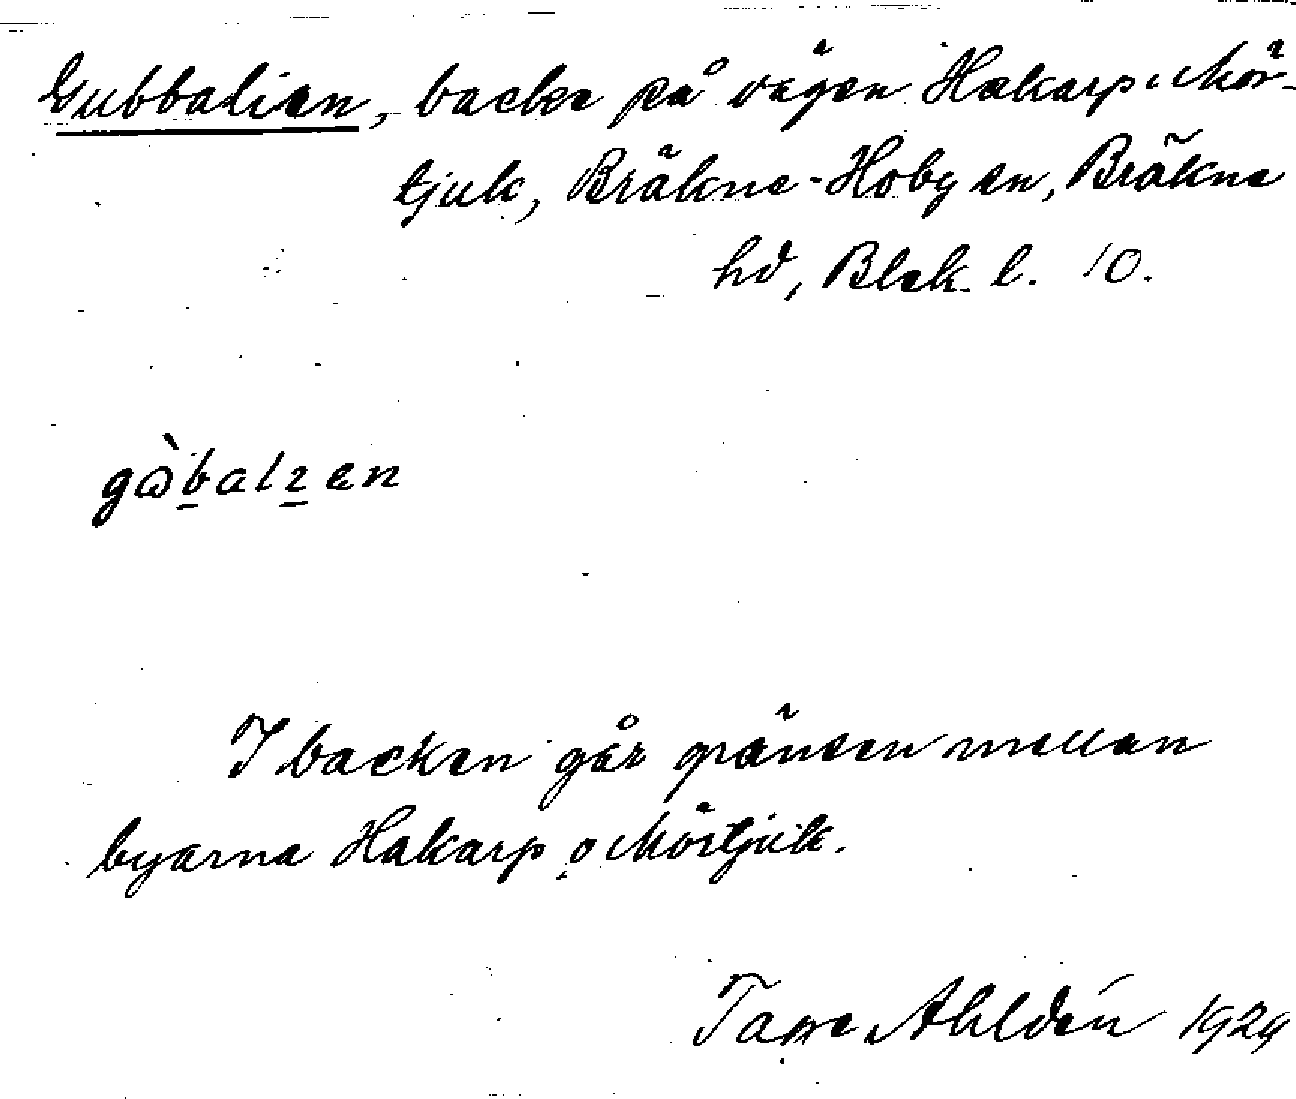 Gubbalien, backe på vägen Hakarp-Mör-
tjuk, Bräkne-Hoby sn, Bräkne
hd, Blek. l. 10.
gòbalɩen
I backen går gränsen mellan
byarna Hakarp o Mörtjuk.
Tage Ahldén 1929